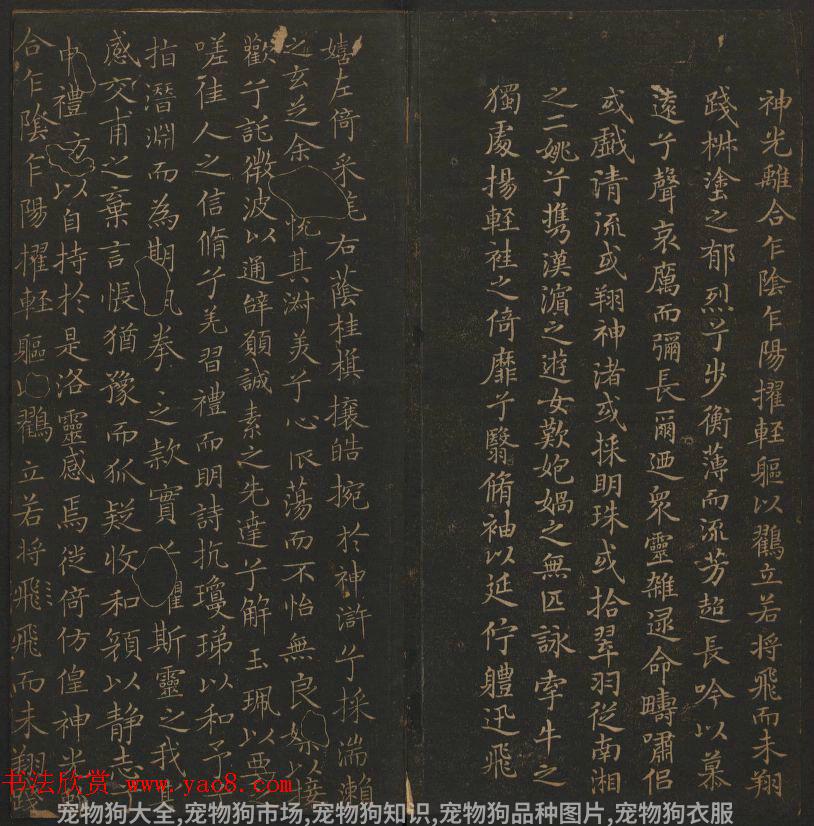 神光離合乍陰乍陽擢軽軀以鸖立若将飛而未翔
踐椒塗之郁烈兮步衡薄而流芳超長吟以慕
遠兮聲哀厲而彌長爾迺衆靈雜遝命疇嘯侣
或戲清流或翔神渚或採明珠或拾翠羽従南湘
之二姚兮攜漢濱之遊女歎匏媧之無匹詠牽牛之
獨處揚軽袿之倚靡兮翳脩袖以延佇軆迅飛
嬉左倚采旄右蔭桂旗攘皓捥於神滸兮採湍瀬
之玄芝余恱其淑美兮心振蕩而不怡無良以接
歡兮託微波以通辭願誠素之先達兮解玉珮以要之
嗟佳人之信脩兮羌習禮而明詩抗瓊珶以和予兮
指潛淵而為期拳之款實懼斯靈之我
感交甫之棄言悵猶豫而狐疑收和顏以静志兮
申禮防以自持於是洛靈感焉徙倚仿偟神光離
合乍陰乍陽擢軽軀以鸖立若将飛飛而未翔踐
书法欣赏 www.yac8.com
宠物狗大全,宠物狗市场,宠物狗知识,宠物狗品种图片,宠物狗衣服